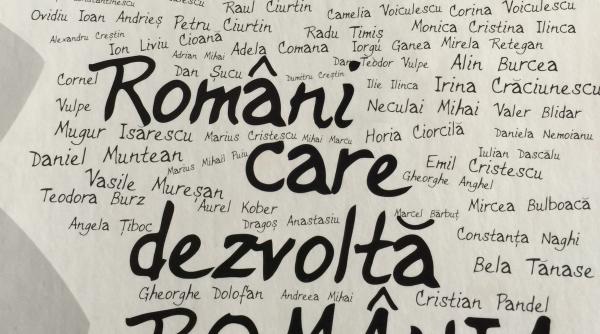 Raul Ciurtin Camelia Voiculescu Corina Voiculescu
Ovidiu Ioan Andrieș Petru Ciurtin Radu Timiș Monica Cristina Ilinca
Alexandru Creștin Ion Liviu Cioană Adela Comana Iorgu Ganea Mirela Retegan
Adrian Mihai Dan Teodor Vulpe Alin Burcea
Cornel Vulpe Dan Șucu Dumitru Creștin Ilie Ilinca Irina Crăciunescu
Români
Neculai Mihai Valer Blidar
Mugur Isărescu Marius Cristescu Mihai Marcu Horia Ciorcilă Daniela Nemoianu
Daniel Muntean Marius Mihail Puiu Iulian Dascălu
care
Emil Cristescu
Vasile Mureșan Gheorghe Anghel
Teodora Burz Aurel Kober Marcel Bărbuț Mircea Bulboacă
Angela Țiboc Dragoș Anastasiu Constanța Naghi
dezvoltă
Bela Tănase
Gheorghe Dolofan Andreea Mihai Cristian Pandel
ROMÂNIA